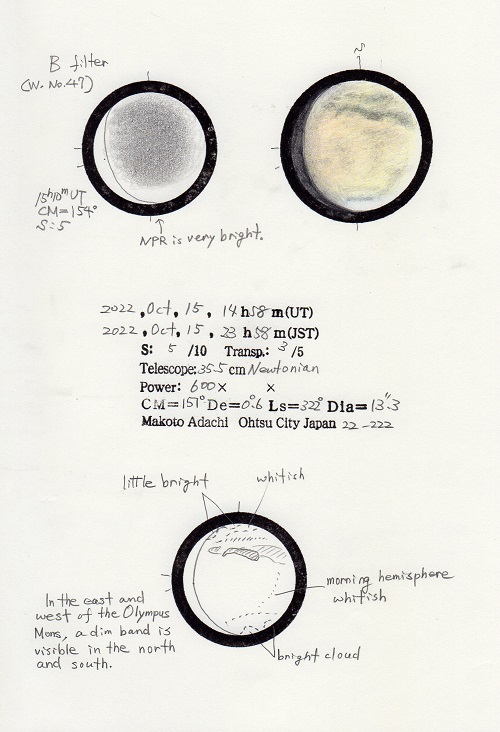 B filter
(W. No.47)
S
15h10m UT
CM=154°
S:5
NPR is very bright.
2022, Oct, 15, 14 h58 m(UT)
2022, Oct, 15, 23 h58 m(JST)
S: 5 /10 Transp.: 3 /5
Telescope: 35.5 cm Newtonian
Power: 600× ×
CM=151° De=0°.6 Ls=322° Dia=13".3
Makoto Adachi Ohtsu City Japan 22-222
little bright
whitish
morning hemisphere
whitish
In the east and
west of the Olympus
Mons, a dim band is
visible in the north
and south.
bright cloud